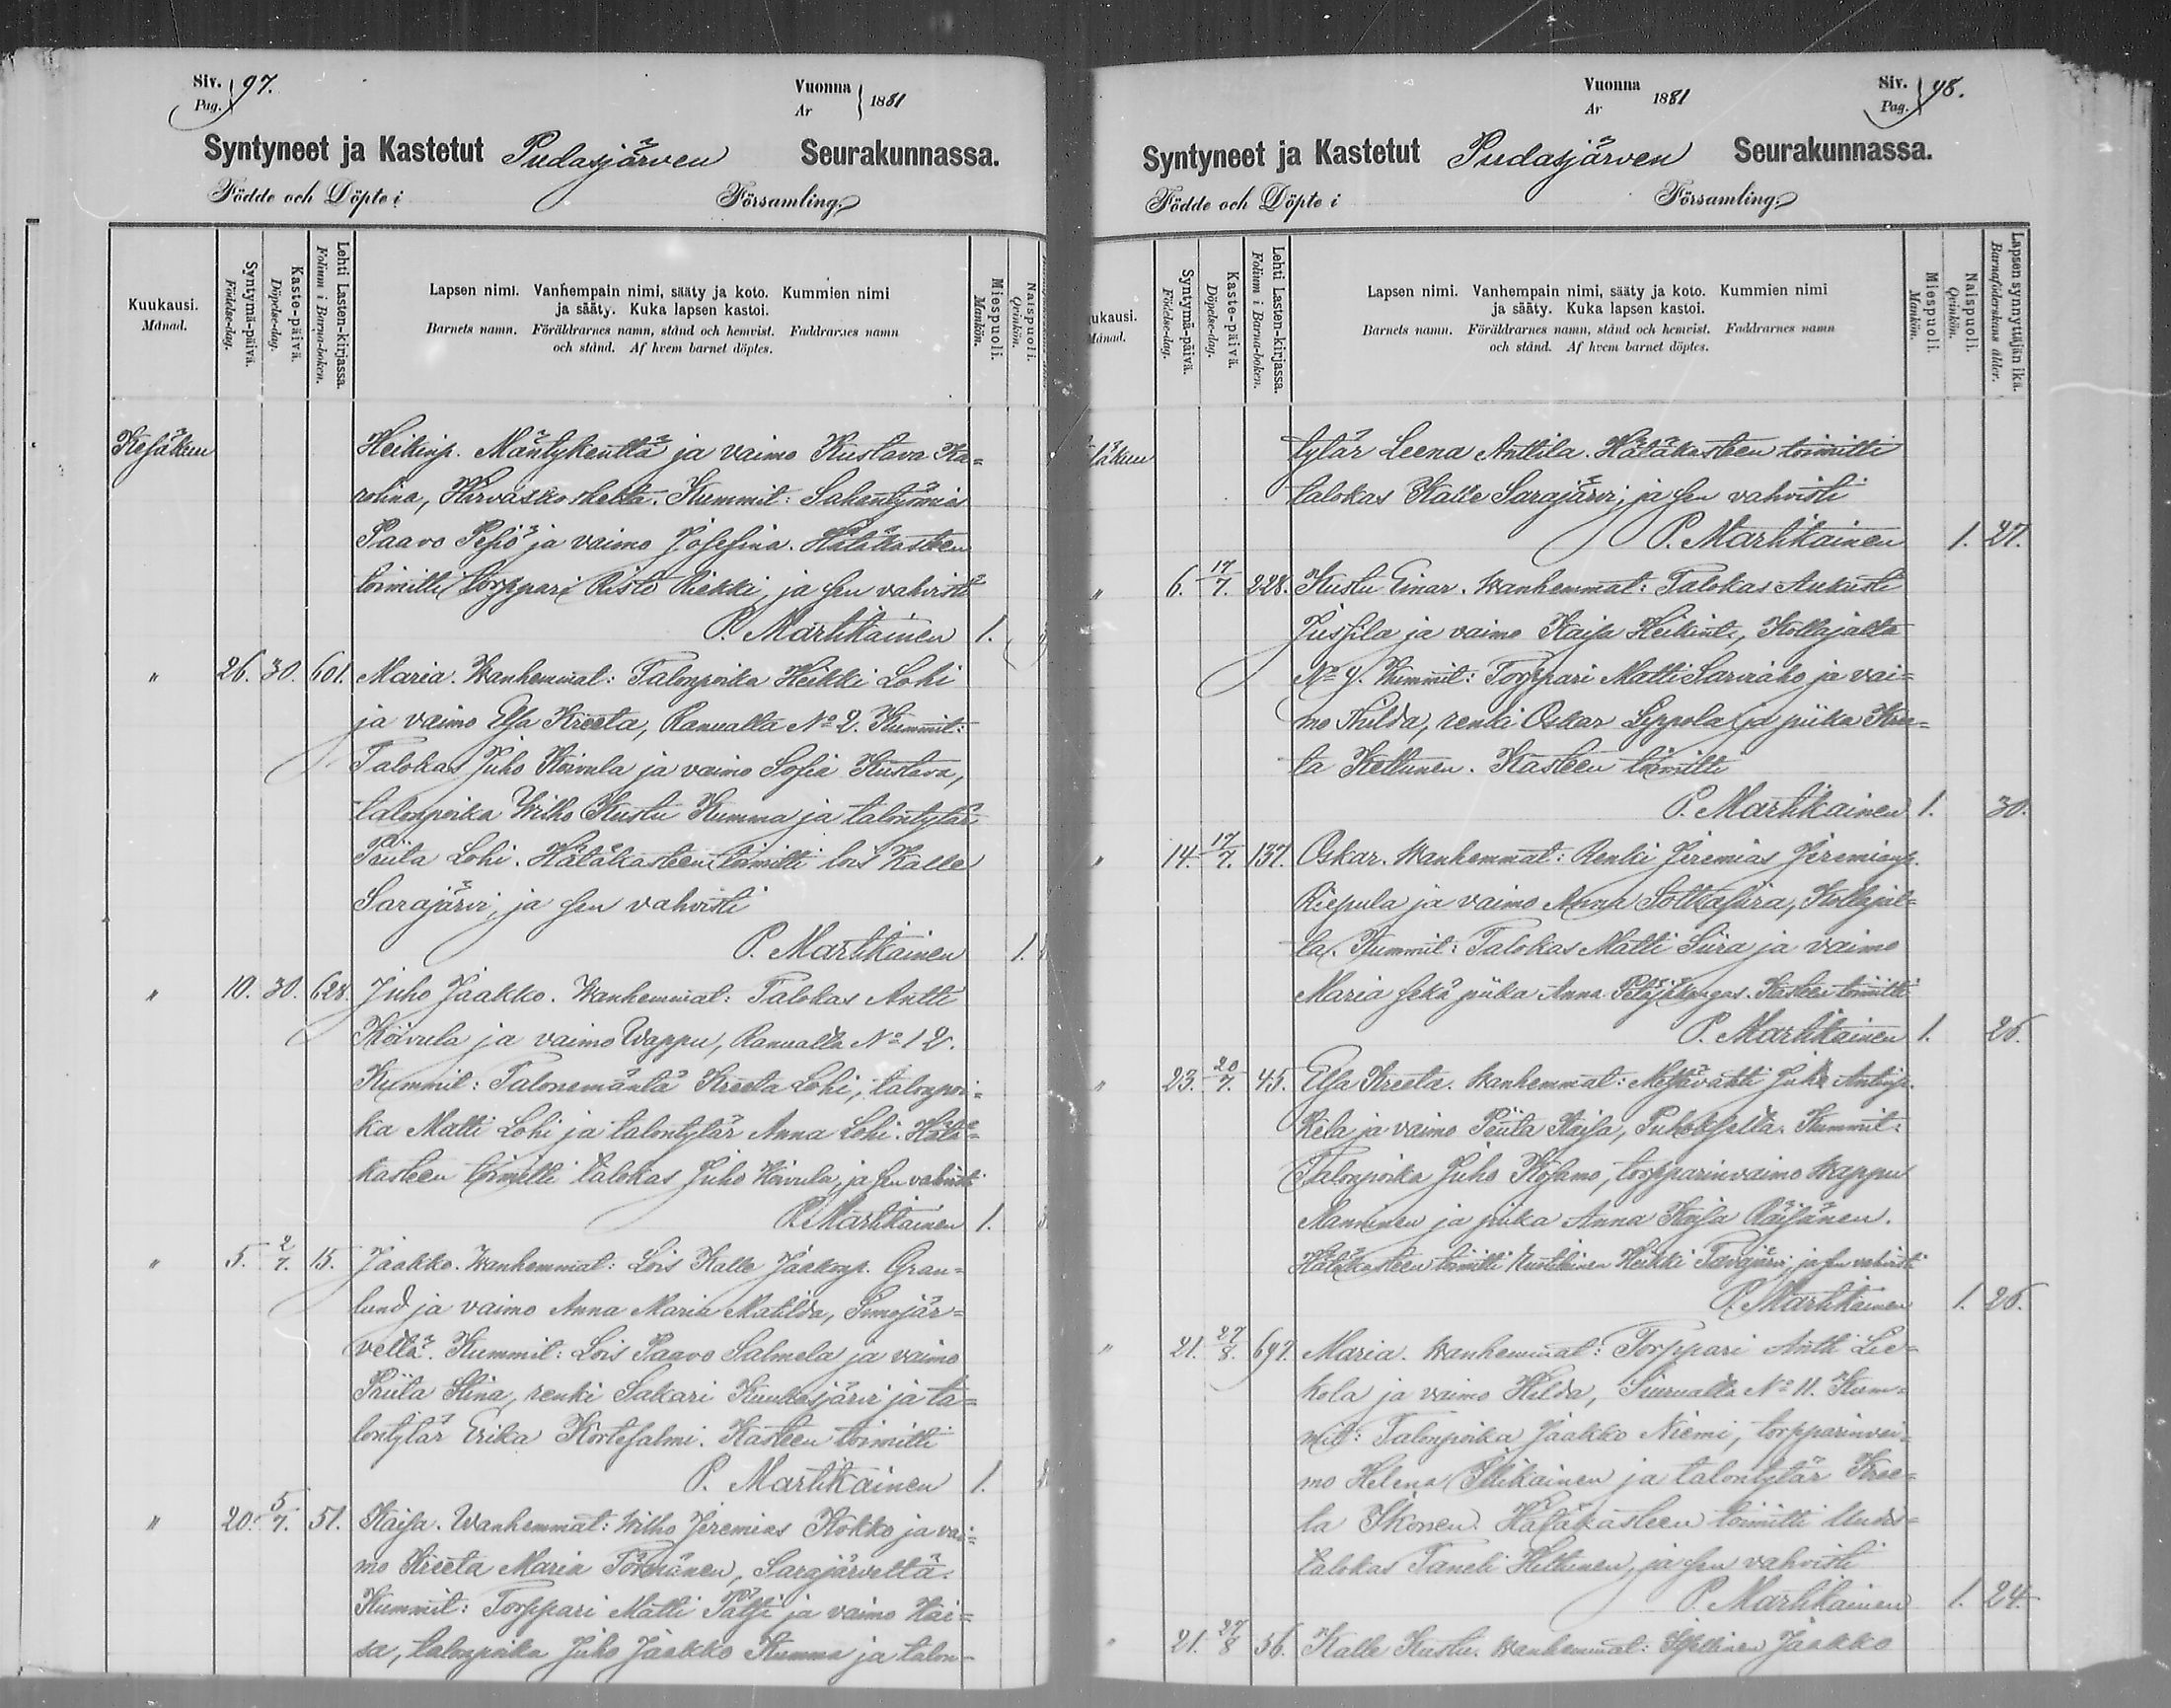 Siv. 97.
Pag.
Vuonna 1881
År
Syntyneet ja Kastetut Pudasjärven Seurakunnassa.
Födde och Döpte i Församling.
Kuukausi.
Månad.
Syntymä-päivä.
Födelse-dag.
Kaste-päivä.
Döpelse-dag.
Lehti Lasten-kirjassa.
Folium i Barna-boken.
Lapsen nimi. Vanhempain nimi, sääty ja koto. Kummien nimi
ja sääty. Kuka lapsen kastoi.
Barnets namn. Föräldrarnes namn, stånd och hemvist. Faddrarnes namn
och stånd. Af hvem barnet döptes.
Miespuoli.
Mankön.
Naispuoli.
Qvinkön.
Kesäkuu Heikinp. Mäntykenttä ja vaimo Kustava Ka=
rolina, Kummit:
Paavo ja vaimo Josefina. Hätäkasteen
toimitti torppari Risto Riekki, ja sen vahvisti
P. Martikainen 1.
" 26. 30. 601. Maria. Wanhemmat: Talonpoika Heikki Lohi
ja vaimo Elsa Kreeta, Ranualta No 2. Kummit:
Talokas Juho Koivula ja vaimo Sofia Kustava,
talonpoika Wilho Kustu Kumma ja talontytär
Priita Lohi. Hätäkasteen toimitti lois Kalle
Sarajärvi, ja sen vahvisti
P. Martikainen 1.
" 10. 30. 628. Juho Jaakko. Wanhemmat: Talokas Antti
Koivula ja vaimo Wappu, Ranualla No 12.
Kummit: Talonemäntä Kreeta Lohi, talonpoi=
ka Matti Lohi ja talontytär Anna Lohi. Hätä=
kasteen toimitti talokas Juho Koivula, ja sen vahvisti
P. Martikainen 1.
" 5. 2/7. 15. Jaakko. Wanhemmat: Lois Kalle Jaakonp. Gran=
lund ja vaimo Anna Maria Matilda, Simojär=
veltä. Kummit: Lois Paavo Salmela ja vaimo
Priita Stina, renki Sakari Kuukasjärvi ja ta=
lontytär Erika Kortesalmi. Kasteen toimitti
P. Martikainen 1.
" 20. 5/7. 51. Kaisa. Wanhemmat: Wilho Jeremias Kokko ja vai=
mo Kreeta Maria Törmänen, Sarajärveltä.
Kummit: Torppari Matti Pätsi ja vaimo Kai=
sa, talonpoika Juho Jaakko Kumma ja talon=
Vuonna 1881
År
Siv. 98.
Pag.
Syntyneet ja Kastetut Pudasjärven Seurakunnassa.
Födde och Döpte i Församling.
ukausi.
Månad.
Syntymä-päivä.
Födelse-dag.
Kaste-päivä.
Döpelse-dag.
Lehti Lasten-kirjassa.
Folium i Barna-boken.
Lapsen nimi. Vanhempain nimi, sääty ja koto. Kummien nimi
ja sääty. Kuka lapsen kastoi.
Barnets namn. Föräldrarnes namn, stånd och hemvist. Faddrarnes namn
och stånd. Af hvem barnet döptes.
Miespuoli.
Mankön.
Naispuoli.
Qvinkön.
Lapsen synnyttäjän ikä.
Barnaföderskans ålder.
tytär Leena Anttila. Hätäkasteen toimitti
talokas Kalle Sarajärvi, ja sen vahvisti
P. Martikainen 1. 27.
" 6. 17/7. 228. Kustu Einar. Wanhemmat: Talokas Aukusti
Jussila ja vaimo Kaisa Heikint., Kollajalta
No 9. Kummit: Torppari Matti Sariaho ja vai=
mo Hilda, renki Oskar Leppola ja piika Kree=
ta Keltunen. Kasteen toimitti
P. Martikainen 1. 30.
" 14. 17/7. 137. Oskar. Wanhemmat: Renki Jeremias Jeremianp.
Riepula ja vaimo Anna Sotkasiira, Kollajal=
ta. Kummit: Talokas Matti Siira ja vaimo
Maria sekä piika Anna Petäjäkangas. Kasteen toimitti
P. Martikainen 1. 26.
" 23. 20/7. 45. Elsa Kreeta. Wanhemmat: Metsävahti Juho Antinp.
Rela ja vaimo Priita Kaisa, Kummit:
Talonpoika Juho torpparinvaimo Wappu
Manninen ja piika Anna Kaisa Räisänen.
Hätäkasteen toimitti Heikki ja sen vahvisti
P. Martikainen 1. 26.
" 21. 27/8. 697. Maria. Wanhemmat: Torppari Antti Lie=
kola ja vaimo Hilda, Siurualta No 11. Kum=
mit: Talonpoika Jaakko Niemi, torpparinvai=
mo Helena Illikainen ja talontytär Kree=
ta Ikonen. Hätäkasteen toimitti Uudis=
talokas Taneli Hiltunen, ja sen vahvisti
P. Martikainen 1. 24.
" 21. 27/8 56. Kalle Kustu. Wanhemmat: Jaakko